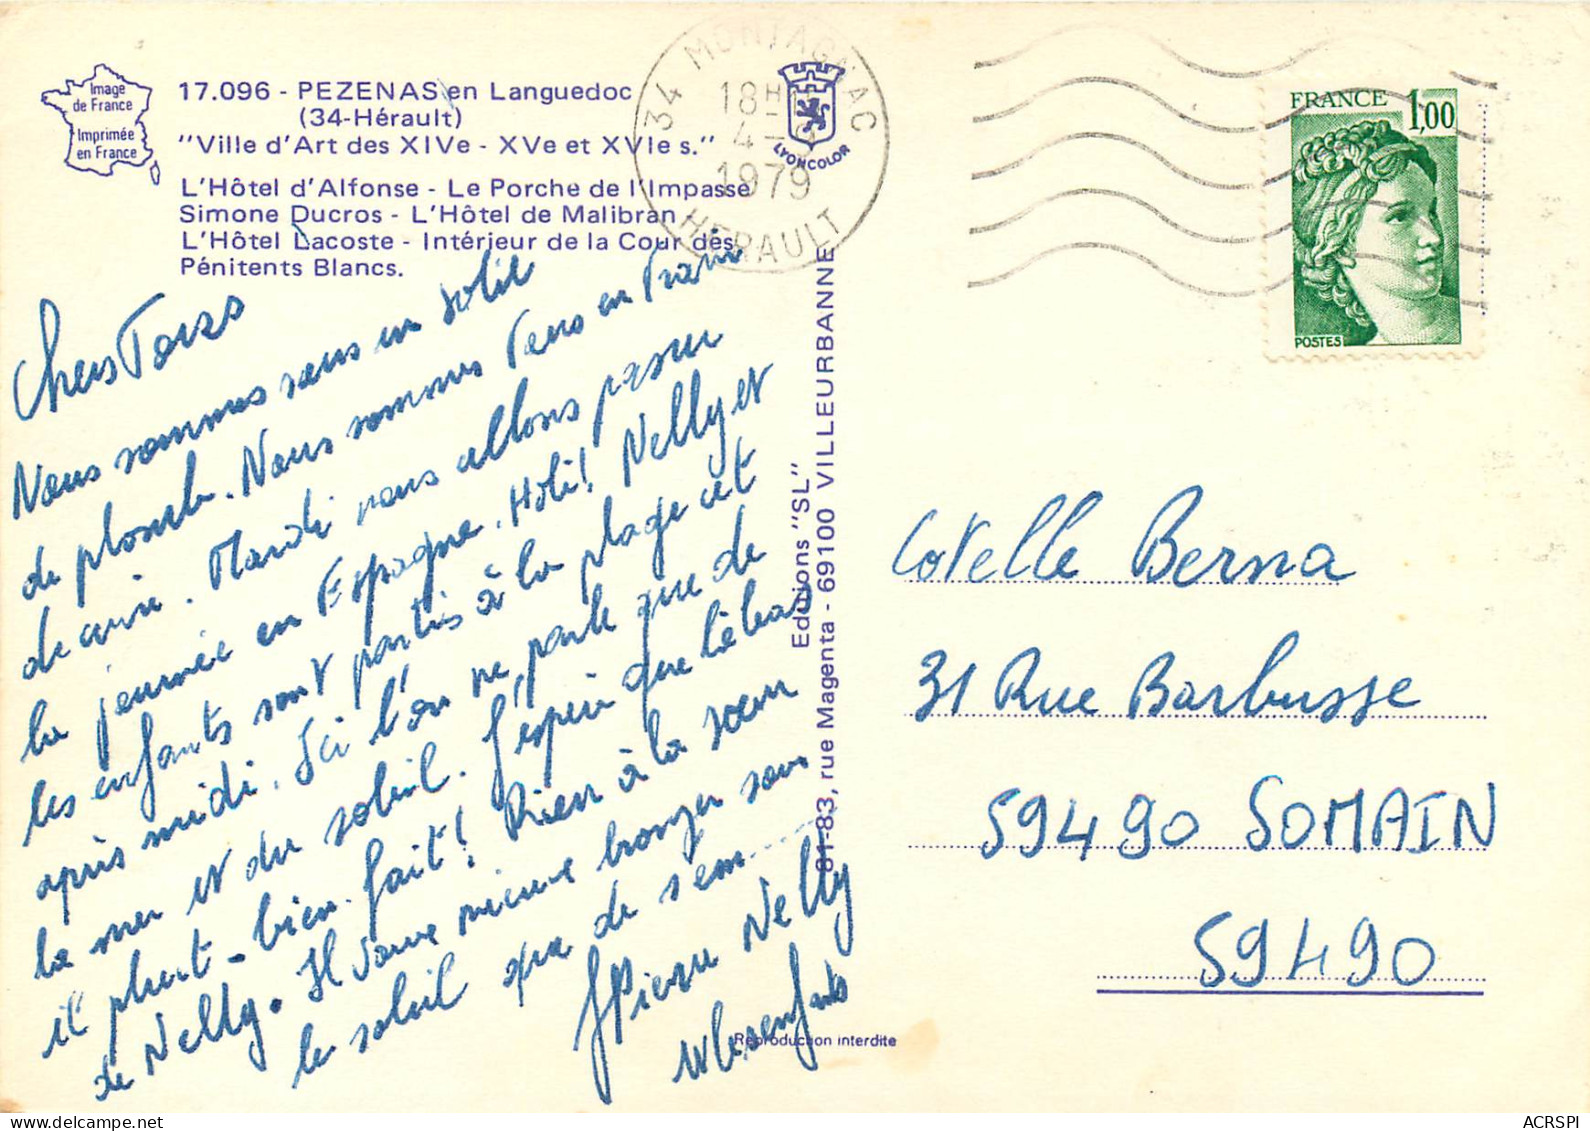 Image
de France
Imprimée
en France
17.096 - PEZENAS en Languedoc
(34-Hérault)
"Ville d'Art des XIVe - XVe et XVIe s."
L'Hôtel d'Alfonse - Le Porche de l'Impasse
Simone Ducros - L'Hôtel de Malibran
L'Hôtel Lacoste - Intérieur de la Cour des
Pénitents Blancs.
34 MONTAGNAC
18H
4-9
1979
HERAULT
LYONCOLOR
FRANCE 1,00
POSTES
Chers Tous
Nous sommes sous un soleil
de plomb. Nous sommes tous en train
de cuire. Mardi nous allons passer
la journée en Espagne. Holé! Nelly et
les enfants sont partis à la plage cet
après midi. Ici l'on ne parle que de
la mer et du soleil. J'espère que là bas
il pleut - bien fait! Rien à la sœur
de Nelly. Il vaut mieux bronzer sous
le soleil que de s'em........
JPierre Nelly
et les enfants
Editions "SL"
81-83, rue Magenta - 69100 VILLEURBANNE
Reproduction interdite
Cotelle Berna
31 Rue Barbusse
59490 SOMAIN
59490
ACRSPI